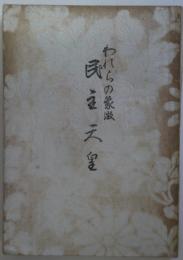 われらの象徴
民主天皇